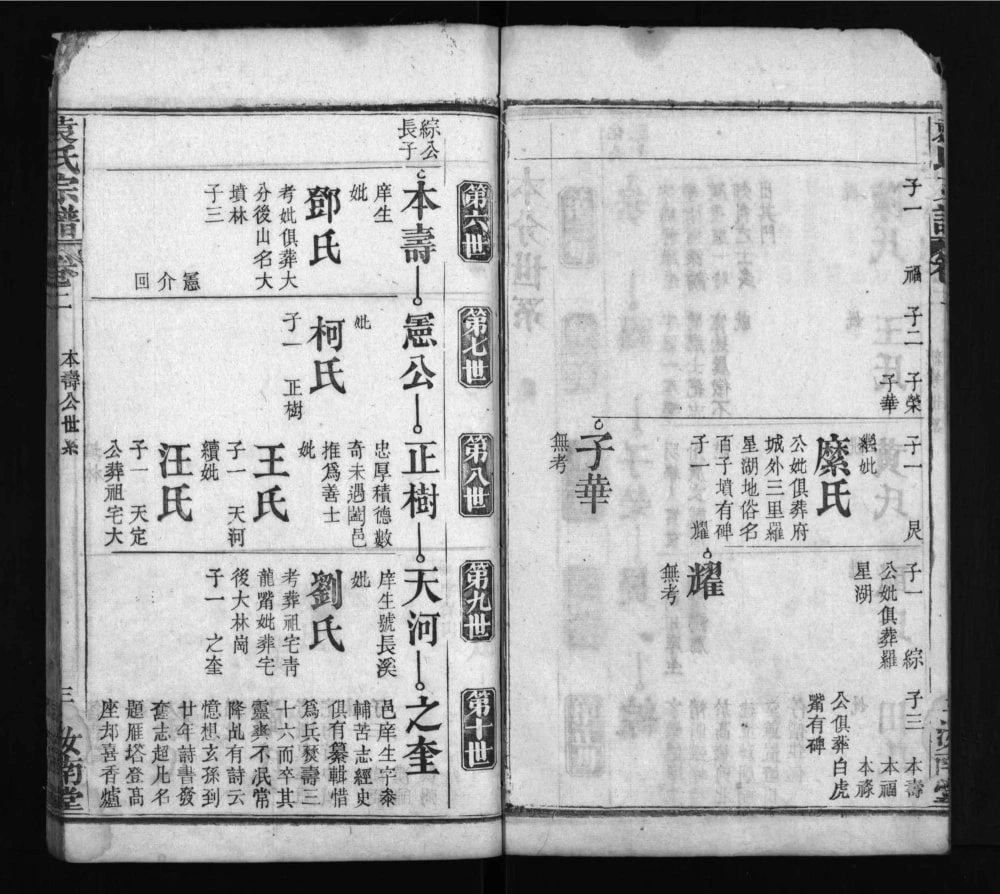 子一 福
子二 子榮
子華
子一 炅
子一 綜
子三 本壽
本福
本祿
繼妣
縻氏
公妣俱葬府
城外三里羅
星湖地俗名
百子墳有碑
子一 耀
公妣俱葬羅
星湖
公俱葬白虎
嘴有碑
子華
無考
耀
無考
第六世
第七世
第八世
第九世
第十世
綜公
長子
本壽
庠生
妣
鄧氏
考妣俱葬大
分後山名大
墳林
子三
憲
介
回
憲公
妣
柯氏
子一 正樹
正樹
忠厚積德數
奇未遇闔邑
推爲善士
妣
王氏
子一 天河
續妣
汪氏
子一 天定
公葬祖宅大
天河
庠生號長溪
妣
劉氏
考葬祖宅靑
龍嘴妣葬宅
後大林崗
子一 之奎
之奎
邑庠生字泰
輔苦志經史
俱有纂輯惜
爲兵燹壽三
十六而卒其
靈爽不泯常
降乩有詩云
憶想玄孫到
廿年詩書發
奮志超凡名
題雁塔登髙
座却喜香爐
袁氏宗譜
卷二
本壽公世系
三
汝南堂